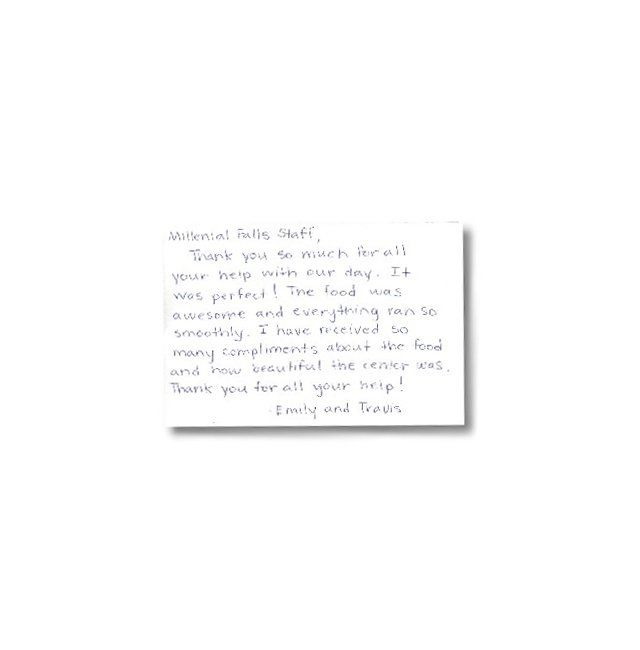 Millenial Falls Staff,
Thank you so much for all
your help with our day. It
was perfect! The food was
awesome and everything ran so
smoothly. I have received so
many compliments about the food
and how beautiful the center was.
Thank you for all your help!
-Emily and Travis